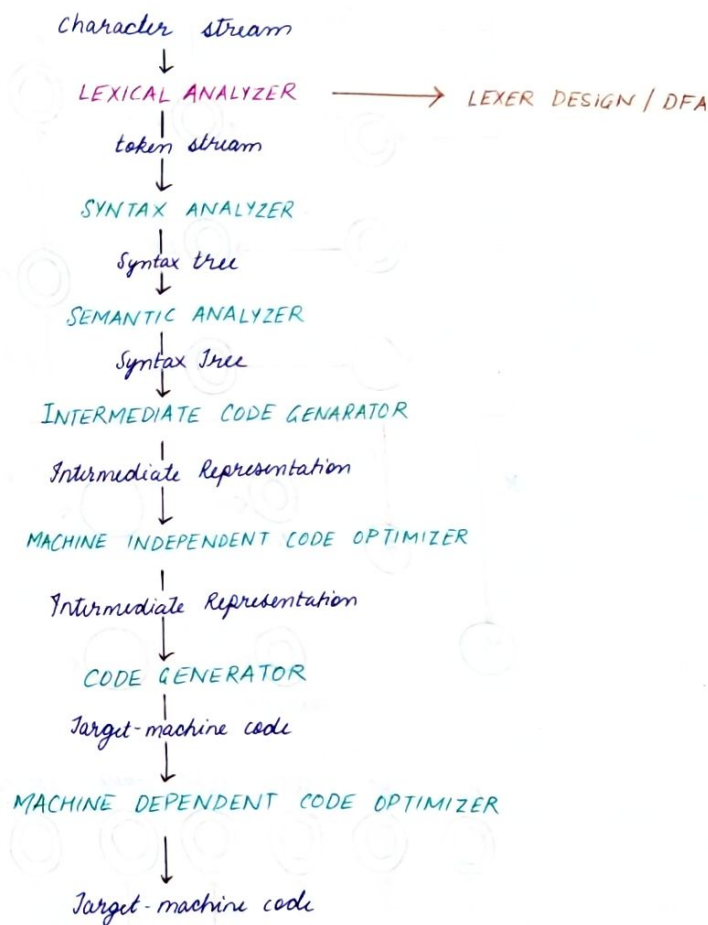 Character stream
LEXICAL ANALYZER → LEXER DESIGN / DFA
token stream
SYNTAX ANALYZER
Syntax tree
SEMANTIC ANALYZER
Syntax Tree
INTERMEDIATE CODE GENARATOR
Intermediate Representation
MACHINE INDEPENDENT CODE OPTIMIZER
Intermediate Representation
CODE GENERATOR
Target-machine code
MACHINE DEPENDENT CODE OPTIMIZER
Target-machine code